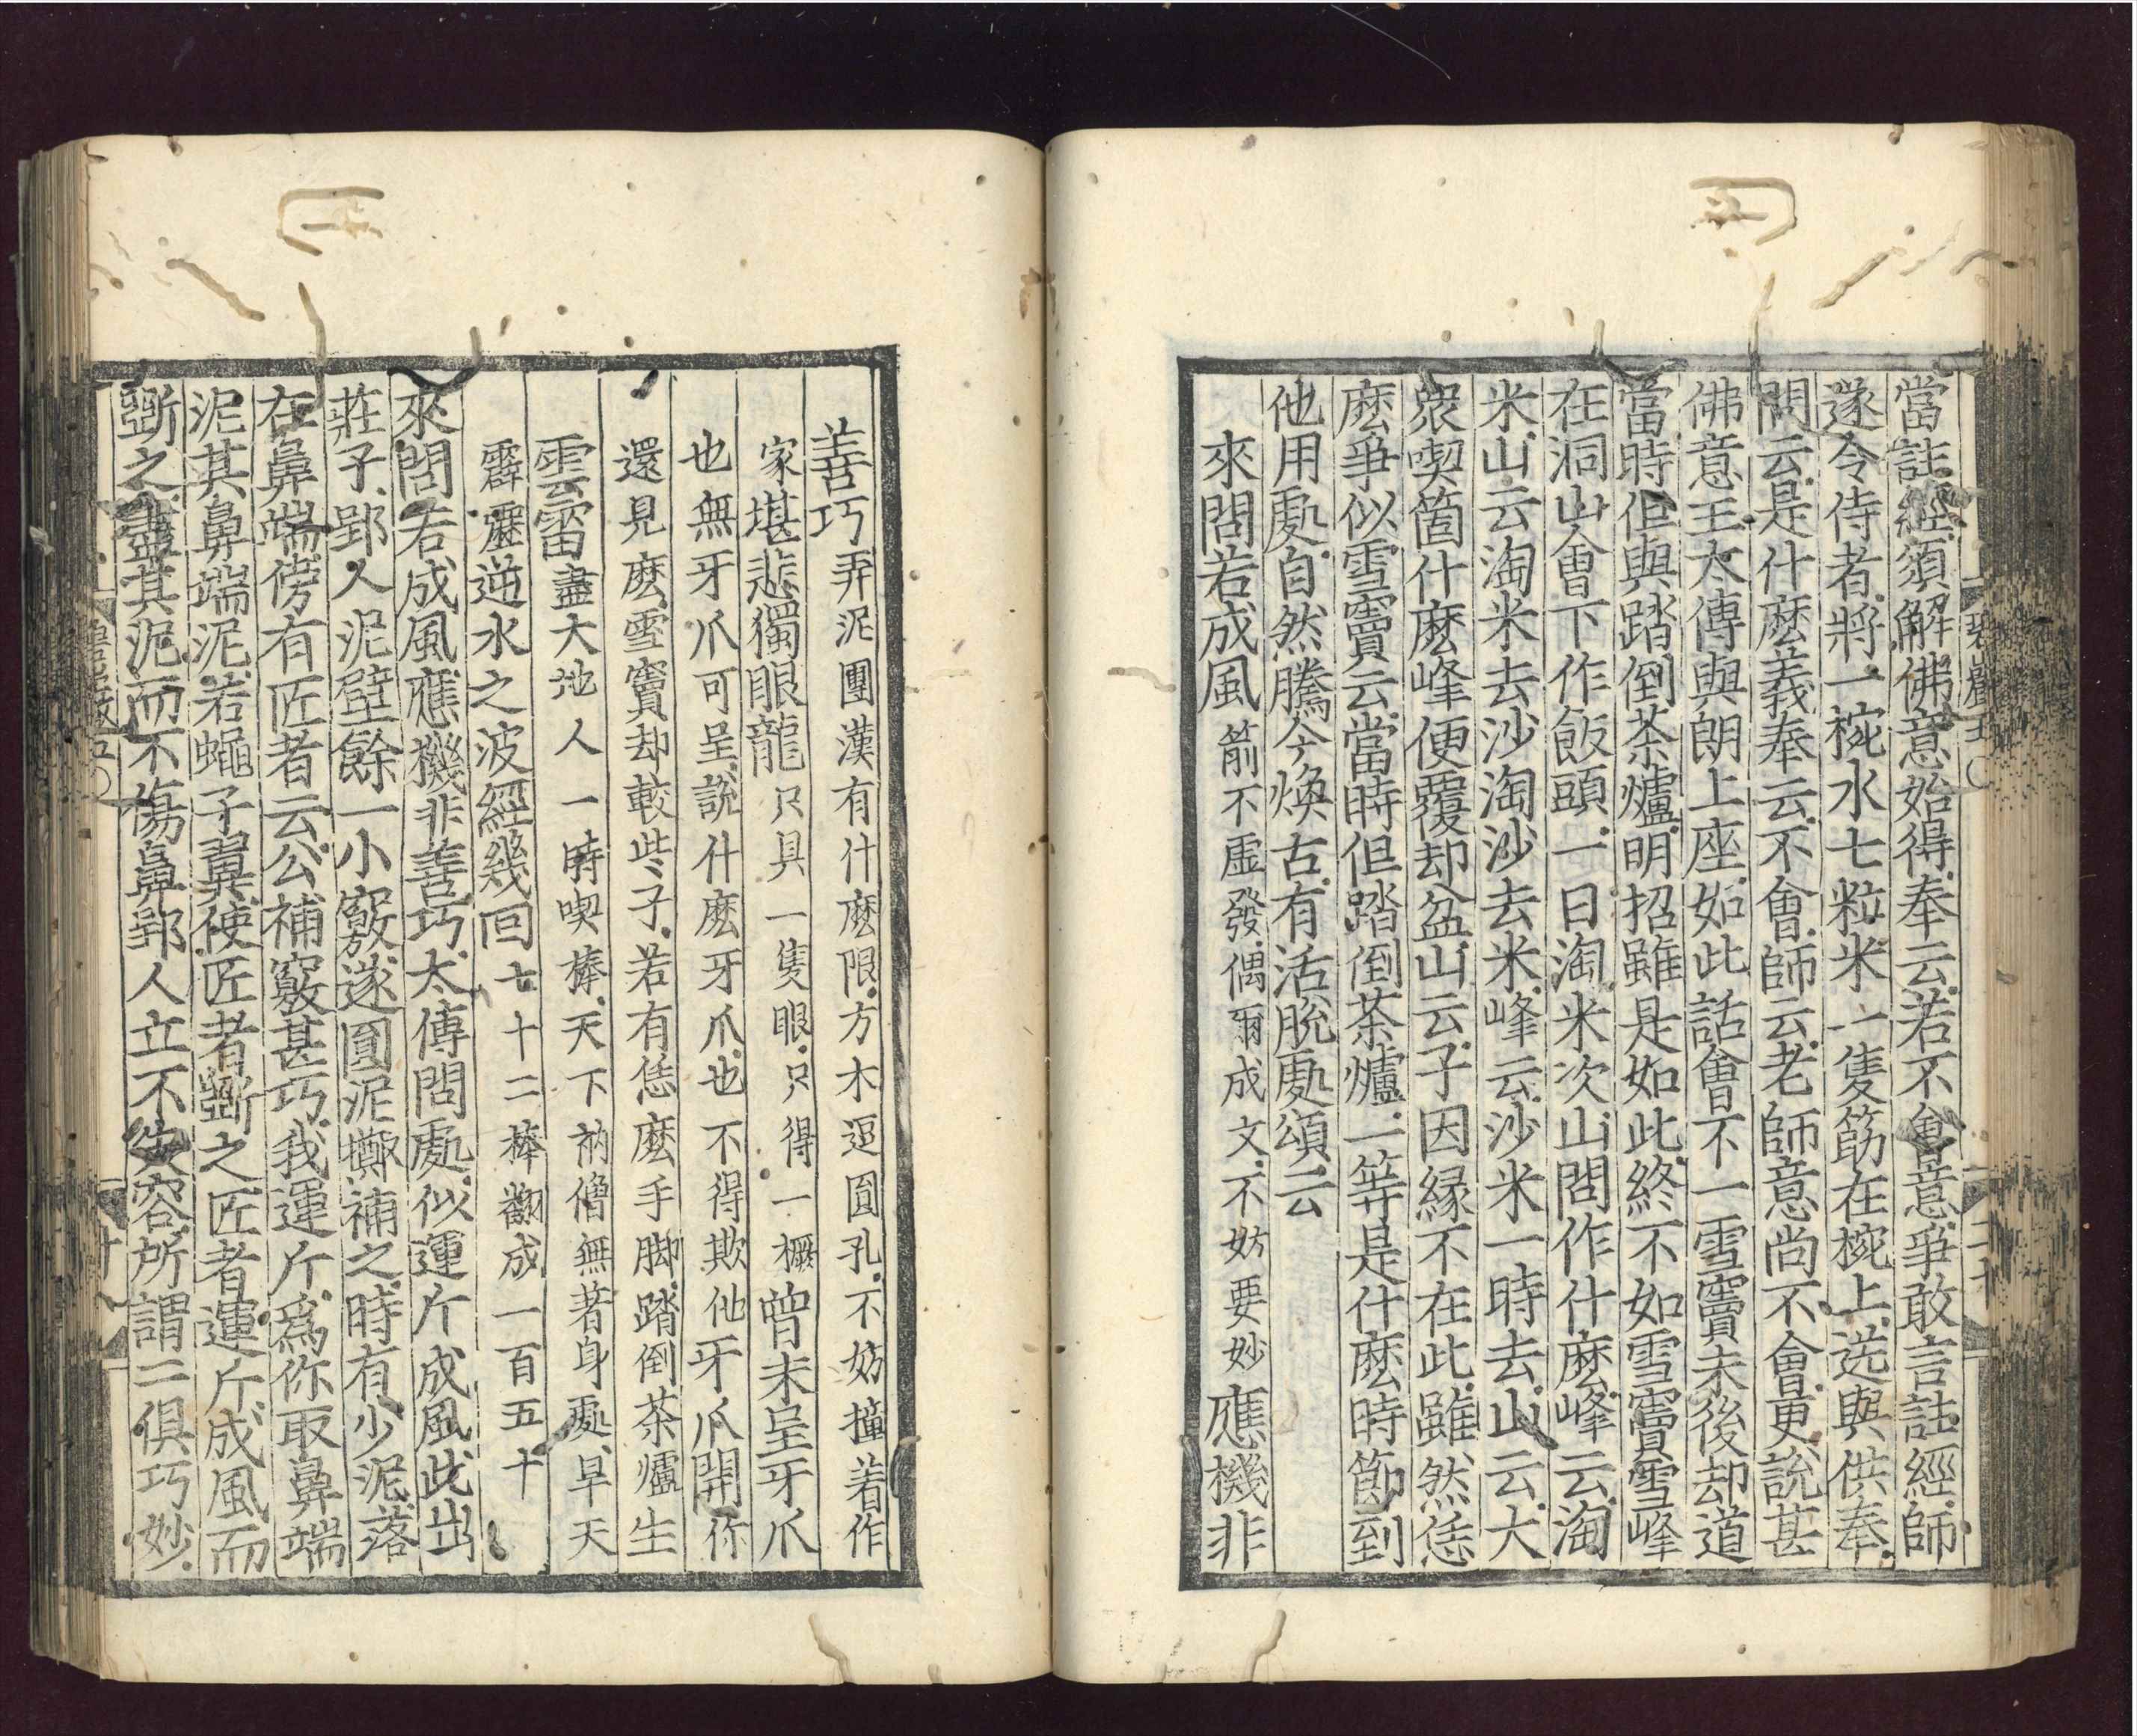 當註經須解佛意始得奉云若不會意爭敢言註經師
遂令侍者將一椀水七粒米一隻筯在椀上送與供奉
問云是什麽義奉云不會師云老師意尚不會更說甚
佛意王太傅與朗上座如此話會不一雪竇末後却道
當時但與踏倒茶爐明招雖是如此終不如雪竇雪峰
在洞山會下作飯頭一日淘米次山問作什麽峰云淘
米山云淘米去沙淘沙去米峰云沙米一時去山云大
衆喫箇什麽峰便覆却盆山云子因緣不在此雖然恁
麽爭似雪竇云當時但踏倒茶爐一等是什麽時節到
他用處自然騰今煥古有活脫處頌云
來問若成風箭不虛發偶爾成文不妨要妙應機非
碧巖五
善巧弄泥團漢有什麽限方木逗圓孔不妨撞着作
家堪悲獨眼龍只具一隻眼只得一橛曾未呈牙爪
也無牙爪可呈說什麽牙爪也不得欺他牙爪開你
還見麽雪竇却較些子若有恁麽手脚踏倒茶爐生
雲雷盡大地人一時喫棒天下衲僧無著身處旱天
霹靂逆水之波經幾回七十二棒翻成一百五十
來問若成風應機非善巧太傅問處似運斤成風此出
莊子郢人泥壁餘一小竅遂圓泥擲補之時有少泥落
在鼻端傍有匠者云公補竅甚巧我運斤爲你取鼻端
泥其鼻端泥若蠅子翼使匠者斲之匠者運斤成風而
斲之盡其泥而不傷鼻郢人立不失容所謂二俱巧妙